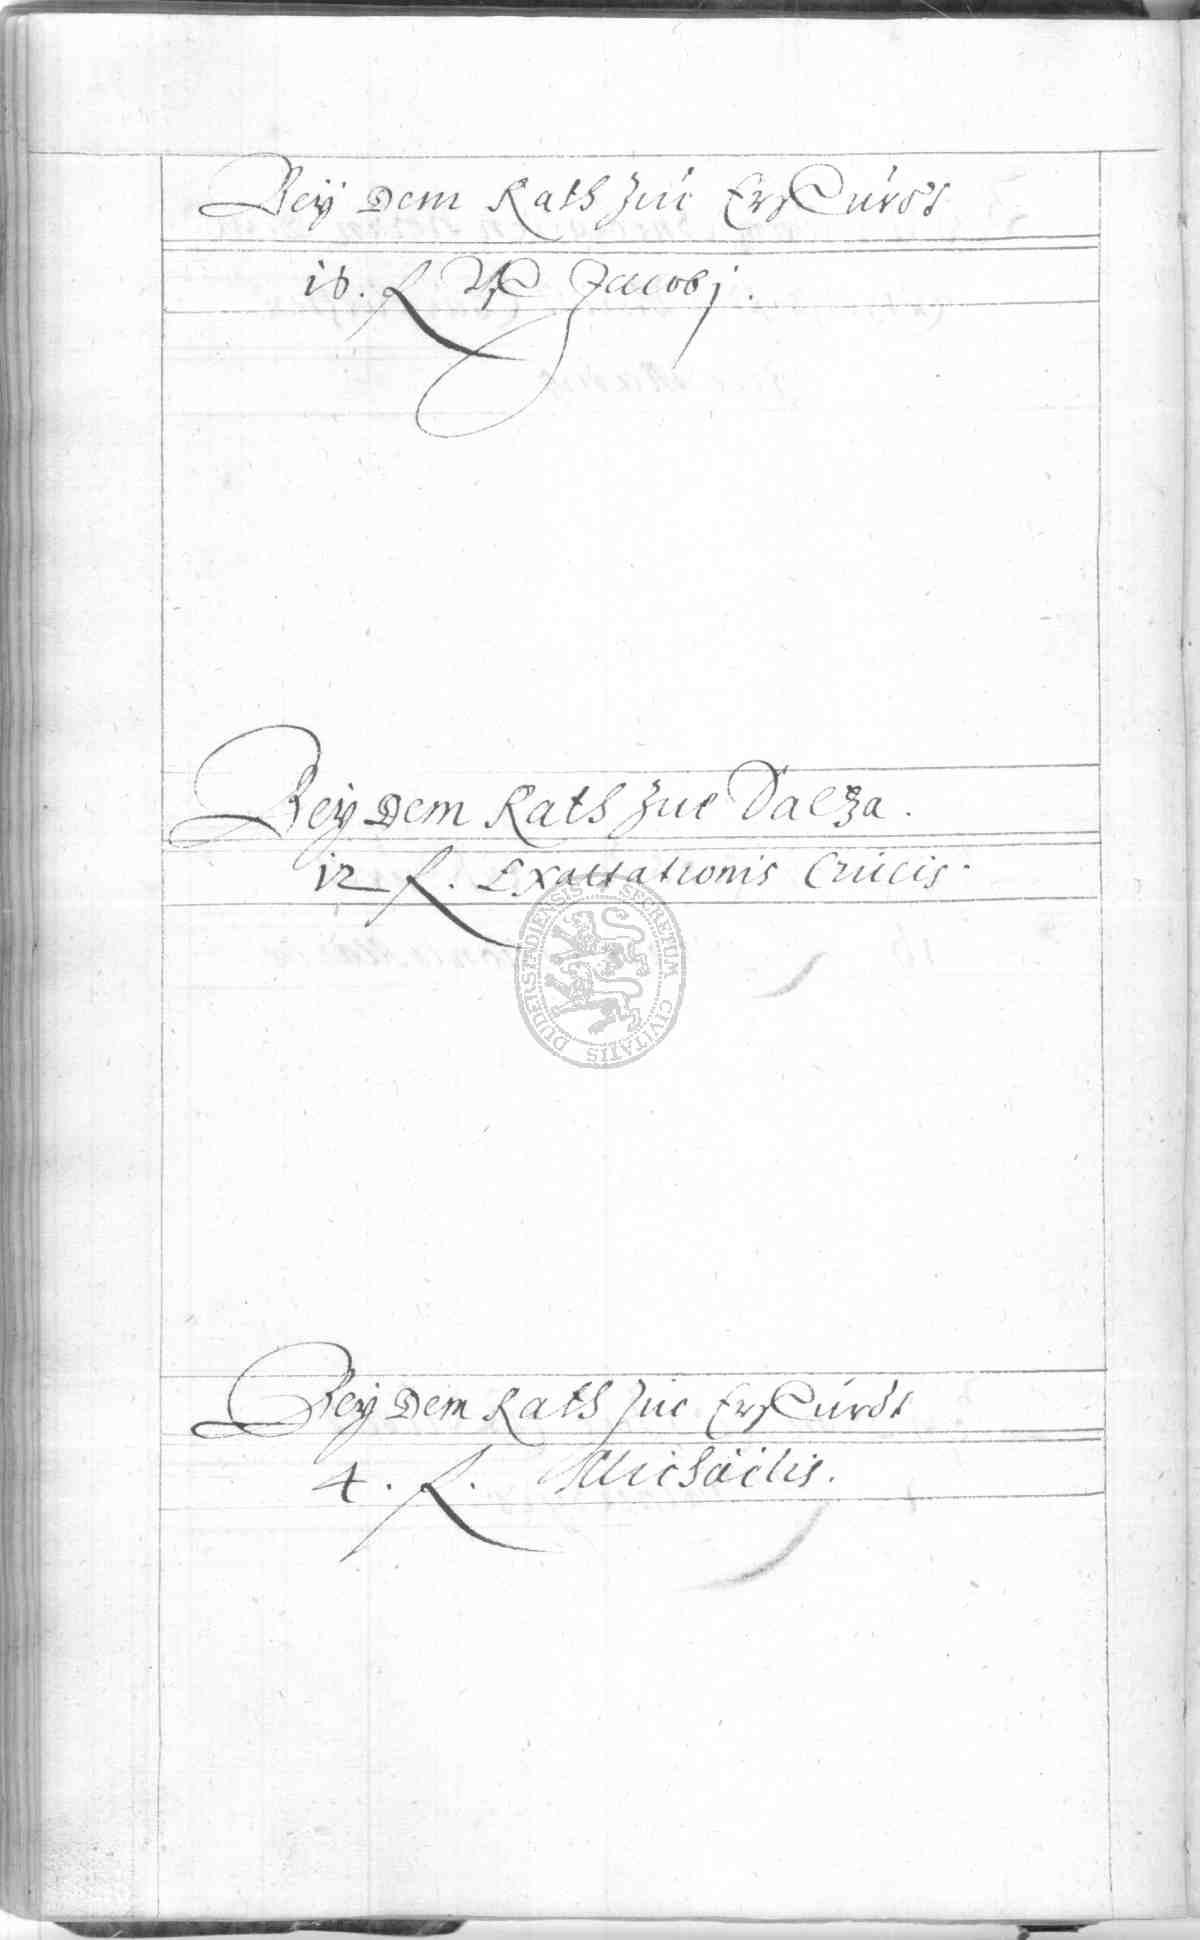 Bey dem Rath zue Erffurdt
18. f. Uff Jacobj.
Bey dem Rath zue Saltza.
12 f. Exaltationis Crucis.
SECRETUM CIVITATIS DUDERSTADIENSIS
Bey dem Rath zue Erffurdt
4. f. Michäelis.